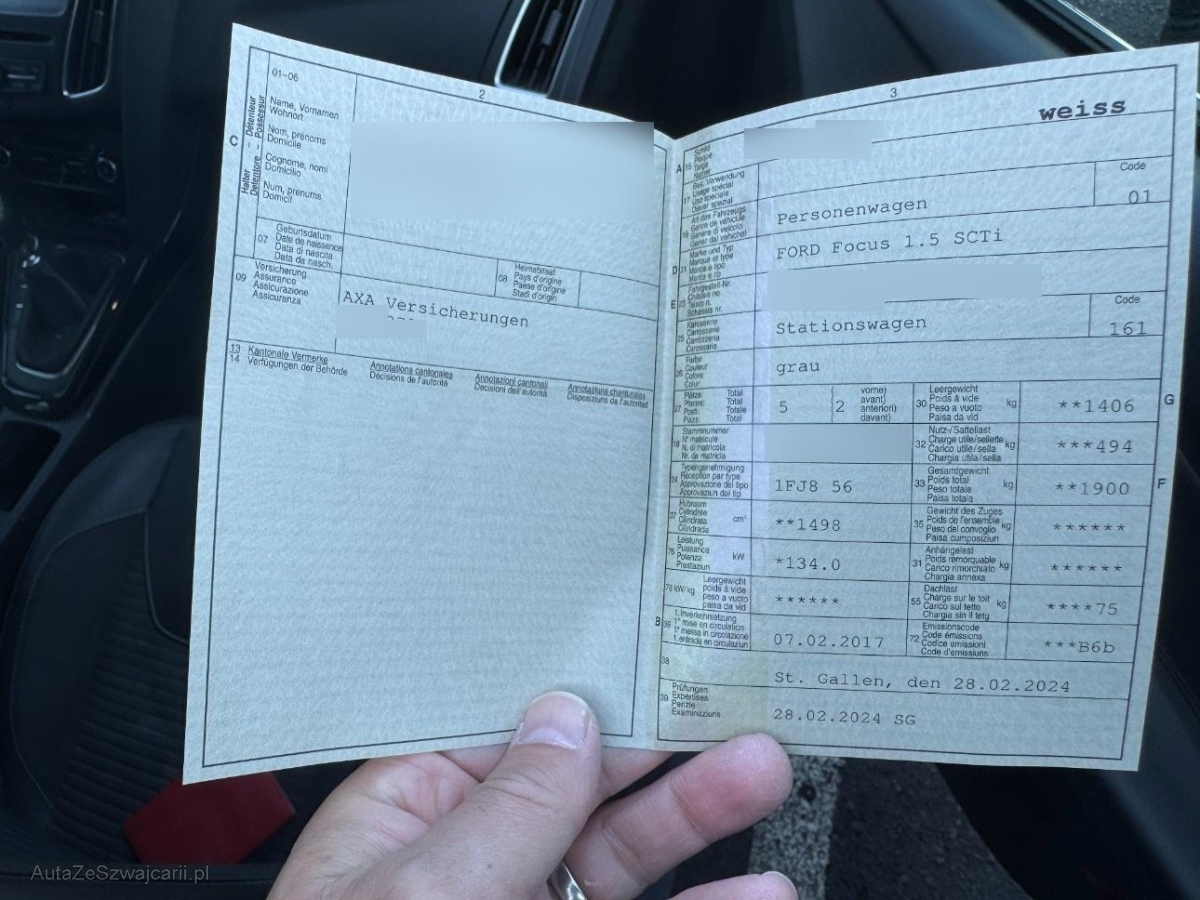 2
01-06
C
Halter - Détenteur
Detentore - Possessur
Name, Vornamen
Wohnort
Nom, prénoms
Domicile
Cognome, nomi
Domicilio
Num, prenums
Domicil
07
Geburtsdatum
Date de naissance
Data di nascita
Data da nasch.
08
Heimatstaat
Pays d'origine
Paese d'origine
Stadi d'origin
09
Versicherung
Assurance
Assicurazione
Assicuranza
AXA Versicherungen
13
14
Kantonale Vermerke
Verfügungen der Behörde
Annotations cantonales
Décisions de l'autorité
Annotazioni cantonali
Decisioni dell'autorità
Annotaziuns chantunalas
Disposiziuns da l'autoritad
3
weiss
A
15
Schild
Plaque
Targa
Numer
17
Bes. Verwendung
Usage spécial
Uso speciale
Diever spezial
Code
01
19
Art des Fahrzeugs
Genre de véhicule
Genere di veicolo
Gener dal vehichel
Personenwagen
D
21
Marke und Typ
Marque et type
Marca e tipo
Marca e tip
FORD Focus 1.5 SCTi
E
23
Fahrgestell-Nr.
Châssis no
Telaio n.
Schassis nr.
25
Karosserie
Carrosserie
Carrozzeria
Carossaria
Stationswagen
Code
161
26
Farbe
Couleur
Colore
Colur
grau
27
Plätze: Total
Places: Total
Posti: Totale
Plazs: Total
5
2
vorne)
avant)
anteriori)
davant)
30
Leergewicht
Poids à vide
Peso a vuoto
Paisa da vid
kg
**1406
G
18
Stammnummer
N° matricule
N. di matricola
Nr. da matricla
32
Nutz-/Sattellast
Charge utile/sellette
Carico utile/sella
Chargia utila/sella
kg
***494
24
Typengenehmigung
Réception par type
Approvazione del tipo
Approvaziun dal tip
1FJ8 56
33
Gesamtgewicht
Poids total
Peso totale
Paisa totala
kg
**1900
F
37
Hubraum
Cylindrée
Cilindrata
Cilindrada
cm³
**1498
35
Gewicht des Zuges
Poids de l'ensemble
Peso del convoglio
Paisa cumposiziun
kg
******
76
Leistung
Puissance
Potenza
Prestaziun
kW
*134.0
31
Anhängelast
Poids remorquable
Carico rimorchiato
Chargia annexa
kg
******
78 kW/kg
Leergewicht
poids à vide
peso a vuoto
paisa da vid
******
55
Dachlast
Charge sur le toit
Carico sul tetto
Chargia sin il tetg
kg
****75
B
36
1. Inverkehrsetzung
1re mise en circulation
1a messa in circolazione
1. entrada en circulaziun
07.02.2017
72
Emissionscode
Code émissions
Codice emissioni
Code d'emissiuns
***B6b
38
St. Gallen, den 28.02.2024
39
Prüfungen
Expertises
Perizie
Examinaziuns
28.02.2024 SG
AutaZeSzwajcarii.pl